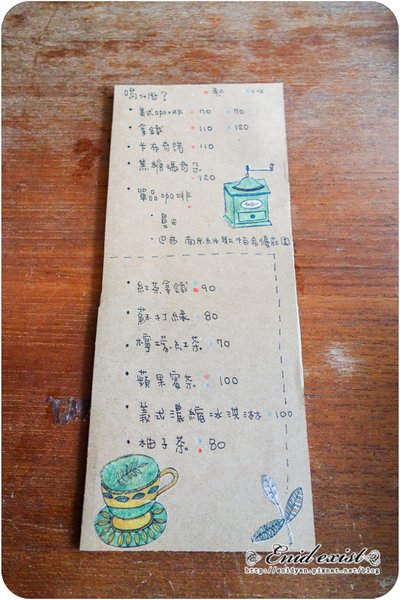 喝什麼? •熱 •冰
• 美式咖啡 •70 •70
• 拿鐵 •110 •120
• 卡布奇諾 •110
• 焦糖瑪奇朵
•120
• 單品咖啡
• 曼巴
• 巴西 南米納斯 莊園
• 紅茶拿鐵 •90
• 蘇打綠 •80
• 檸檬紅茶 •70
• 蘋果蜜茶 •100
• 義式濃縮冰淇淋 •100
• 柚子茶 •80
Enid exist
http://enidyen.pixnet.net/blog